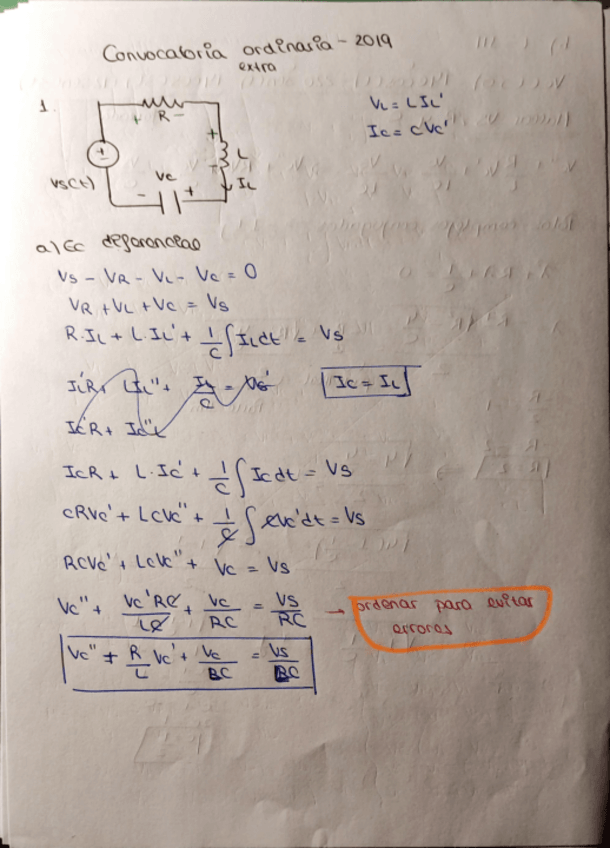 Convocatoria ordinaria - 2019
extra
1.
R
+ -
VL = L IL'
Ic = C Vc'
+
L
-
IL
Vs(t)
Vc
- +
a) Ec diferencias
Vs - VR - VL - Vc = 0
VR + VL + Vc = Vs
R·IL + L·IL' + 1/C ∫ILdt = Vs
IL'R + LIL'' + IL/C = Vs'
Ic = IL
Ic'R + Ic''L
IcR + L·Ic' + 1/C ∫ Ic dt = Vs
CRVc' + LCVc'' + 1/C ∫ CVc'dt = Vs
RCVc' + LCVc'' + Vc = Vs
Vc'' + Vc'RC/LC + Vc/RC = Vs/RC → ordenar para evitar
errores
Vc'' + R/L Vc' + Vc/BC = Vs/BC